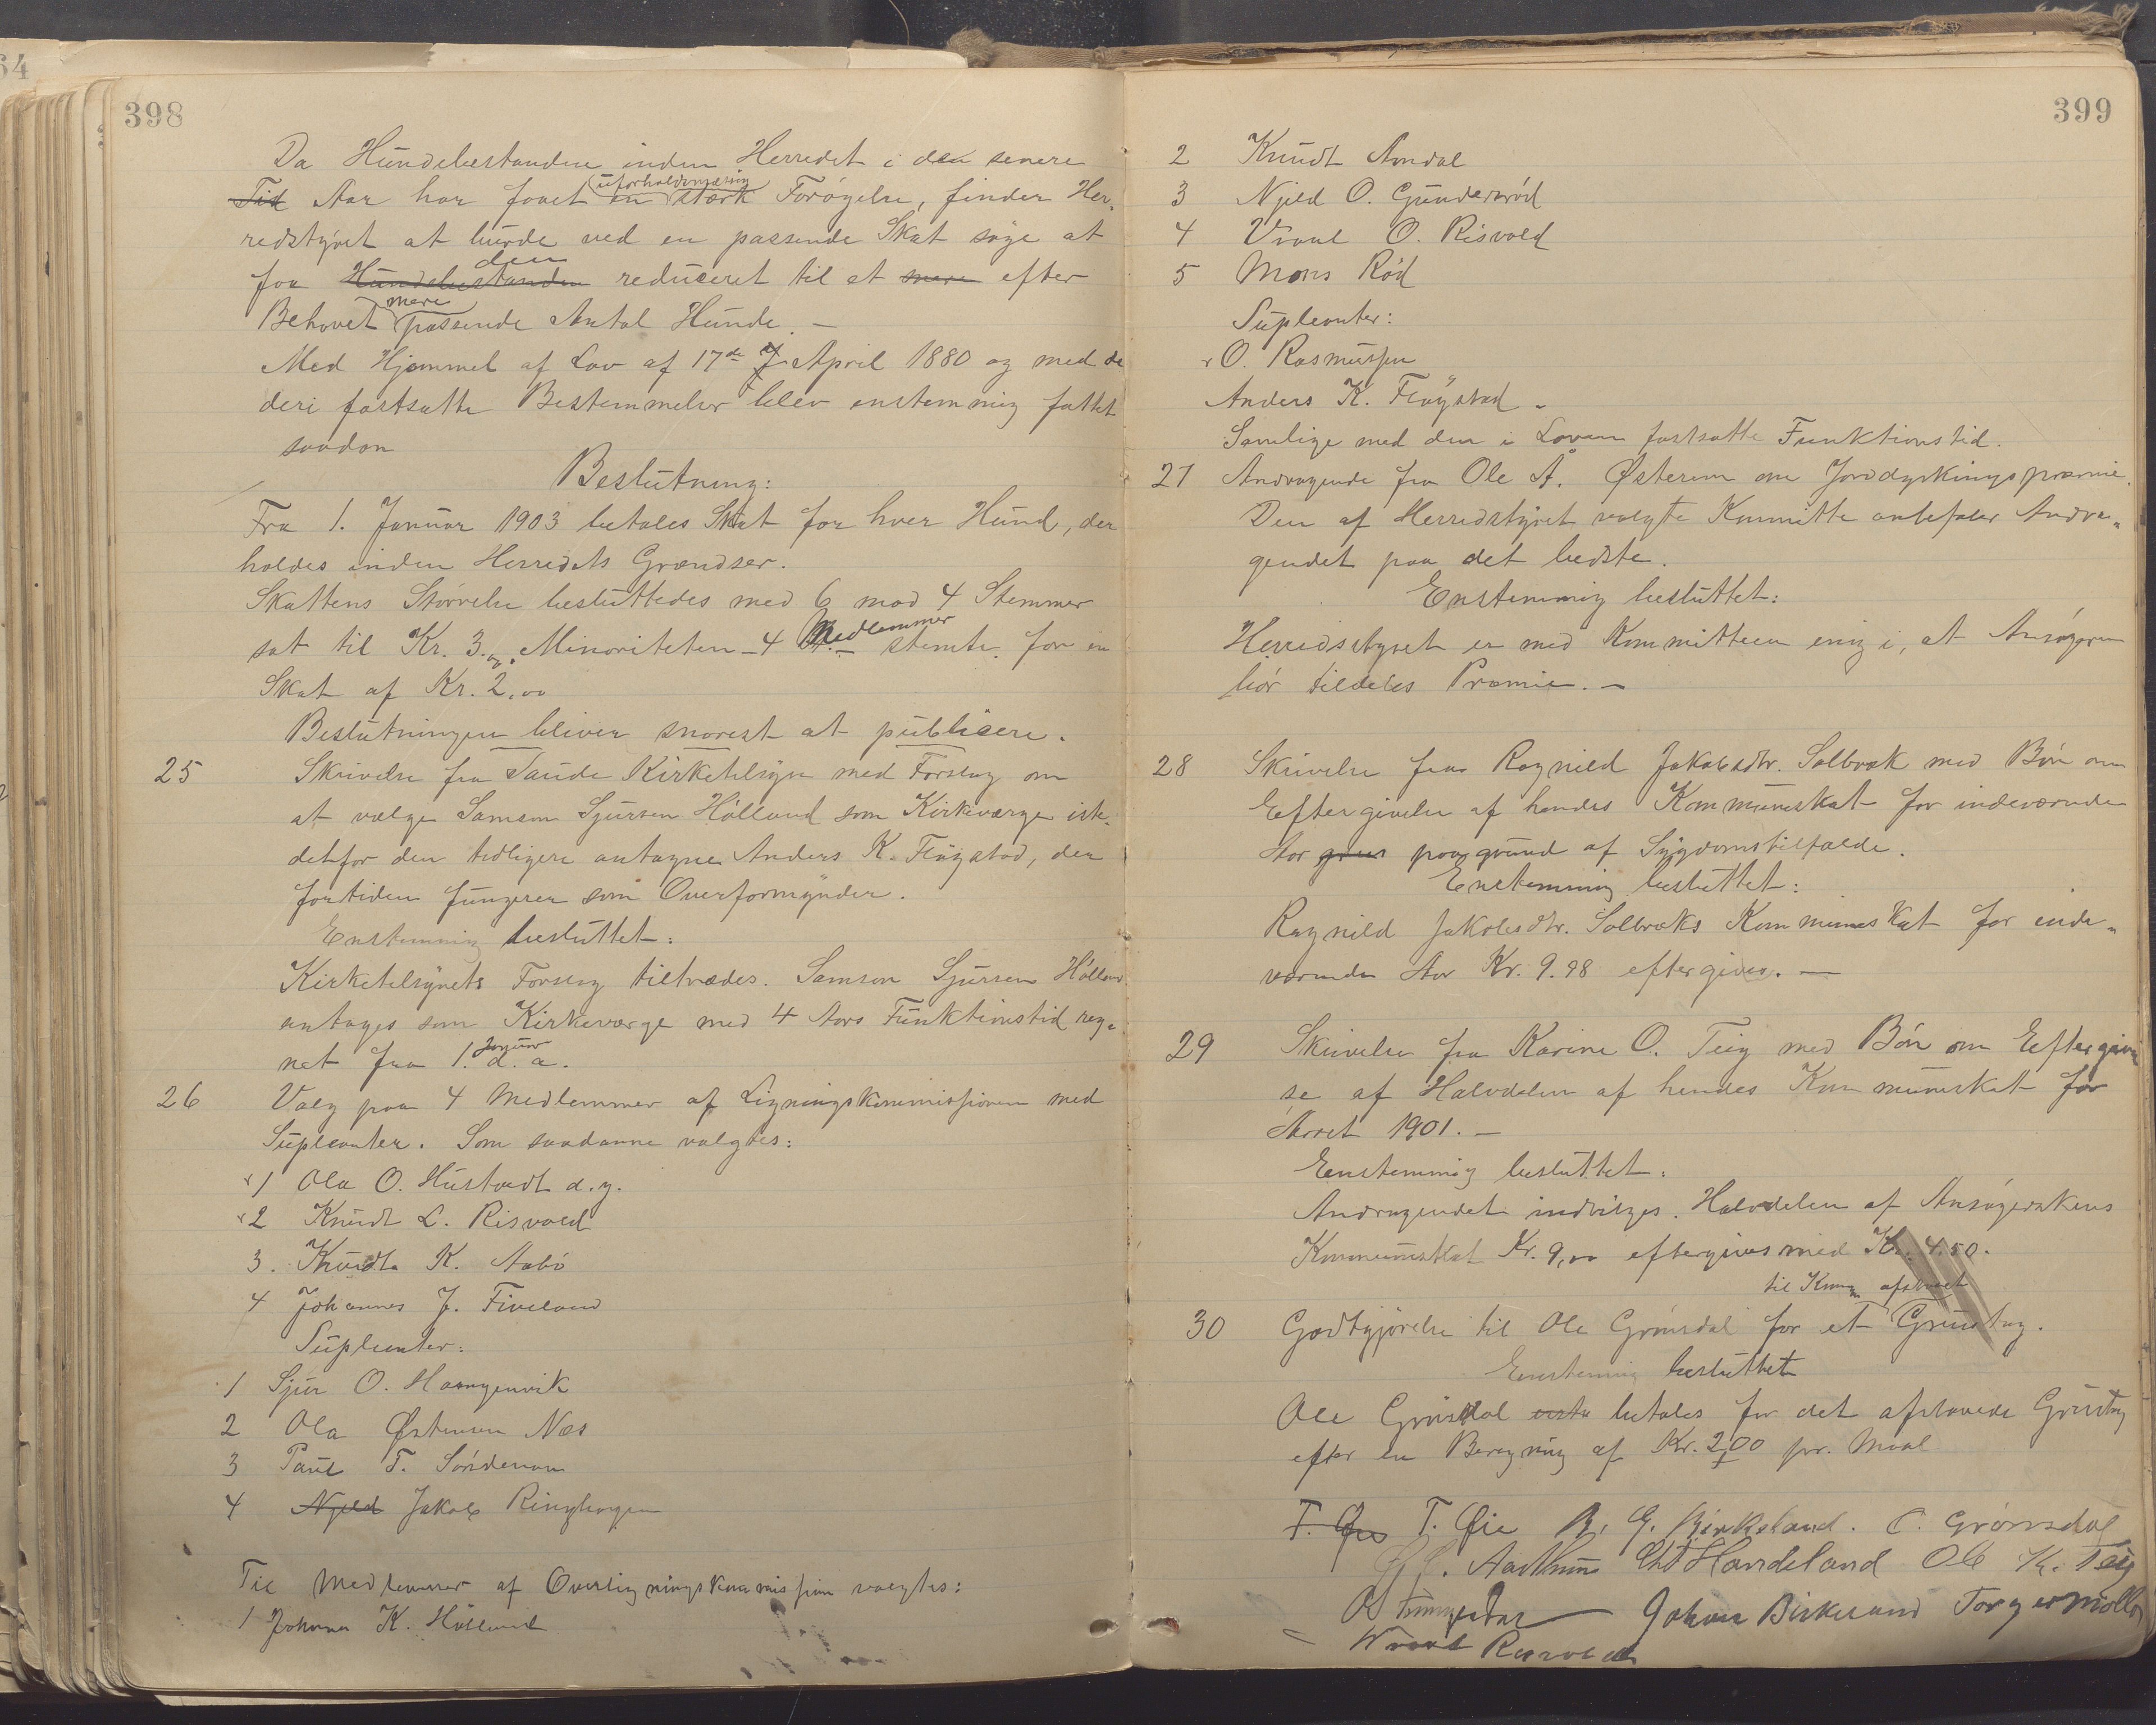 398
Da Hundebestanden inden Herredet i den senere
Tid Aar har faaet en uforholdsmæssig stærk Forøgelse, finder Her-
redstyret at burde ved en passende Skat søge at
faa Hundebestanden den reduceret til et mere efter
Behovet mere passende Antal Hunde. —
Med Hjemmel af Lov af 17de April 1880 og med de
deri fastsatte Bestemmelser blev enstemmig fattet
saadan
Beslutning:
Fra 1. Januar 1903 betales Skat for hver Hund, der
holdes inden Herredets Grændser.
Skattens Størrelse besluttedes med 6 mod 4 Stemmer
sat til Kr. 3.00. Minoriteten – 4 Medlemmer – stemte for en
Skat af Kr. 2,00
Beslutningen bliver snarest at publicere.
25 Skrivelse fra Saude Kirketilsyn med Forslag om
at vælge Samson Sjursen Hølland som Kirkeværge iste-
detfor den tidligere antagne Anders K. Fløgstad, der
fortiden fungerer som Overformynder.
Enstemmig besluttet:
Kirketilsynets Forslag tiltrædes. Samson Sjursen Hølland
antages som Kirkeværge med 4 Aars Funktionstid reg-
net fra 1. Januar d. a.
26 Valg paa 4 Medlemmer af Ligningskommissionen med
Supleanter. Som saadanne valgtes:
1 Ola O. Hustvedt d.y.
2 Knudt L. Risvold
3. Knudt K. Aabø
4 Johannes J. Fiveland
Supleanter:
1 Sjur O. Haangenvik
2 Ola Østensen Næs
3 Paul T. Søndenaa
4 Njeld Jakob Ringhagen
Til Medlemmer af Overligningskommission valgtes:
1 Johannes K. Hølland
399
2 Knudt Amdal
3 Njeld O. Gundersrød
4 Vraal O. Risvold
5 Mons Rød
Supleanter:
O. Rasmussen
Anders K. Fløgstad
Samlige med den i Loven fastsatte Funktionstid.
27 Andragende fra Ole A. Østerem om Jorddyrkingspræmie.
Den af Herredstyret valgte Kommitte anbefaler Andra-
gendet paa det bedste.
Enstemmig besluttet:
Herredstyret er med Kommitteen enig i, at Ansøgeren
bør tildeles Præmie. —
28 Skrivelse fra Ragnild Jakobsdtr. Solbræk med Bøn om
Eftergivelse af hendes Kommuneskat for indeværende
Aar paa grund af Sygdomstilfælde.
Enstemmig besluttet:
Ragnild Jakobsdtr. Solbræks Kommuneskat for inde-
værende Aar Kr. 9.98 eftergives. —
29 Skrivelse fra Karine O. Teig med Bøn om Eftergivel
se af Halvdelen af hendes Kommuneskat for
Aaret 1901. —
Eenstemmig besluttet:
Andragendet indvilges. Halvdelen af Ansøgerskens
Kommuneskat Kr. 9,00 eftergives med Kr. 4.50.
30 Godtgjørelse til Ole Grønsdal for et til Kommunen afstaaet Grustag.
Eenstemmig besluttet
Ole Grønsdal betales for det afstaaede Grustag
efter en Beregning af Kr. 200 pr. Maal
T. Øie T. Øie B. G. Birkeland. O. Grønsdal
Aarthun Handeland Ole K. Teig
Johan Birkeland Torger Mølle
Vraal Risvold